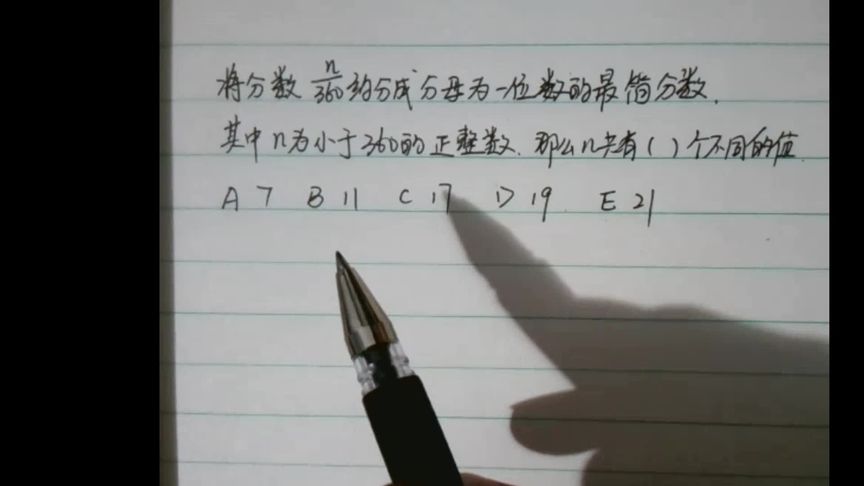 将分数 n/360 约分成分母为一位数的最简分数.
其中 n为小于360的正整数. 那么n共有( )个不同的值.
A 7 B 11 C 17 D 19. E 21